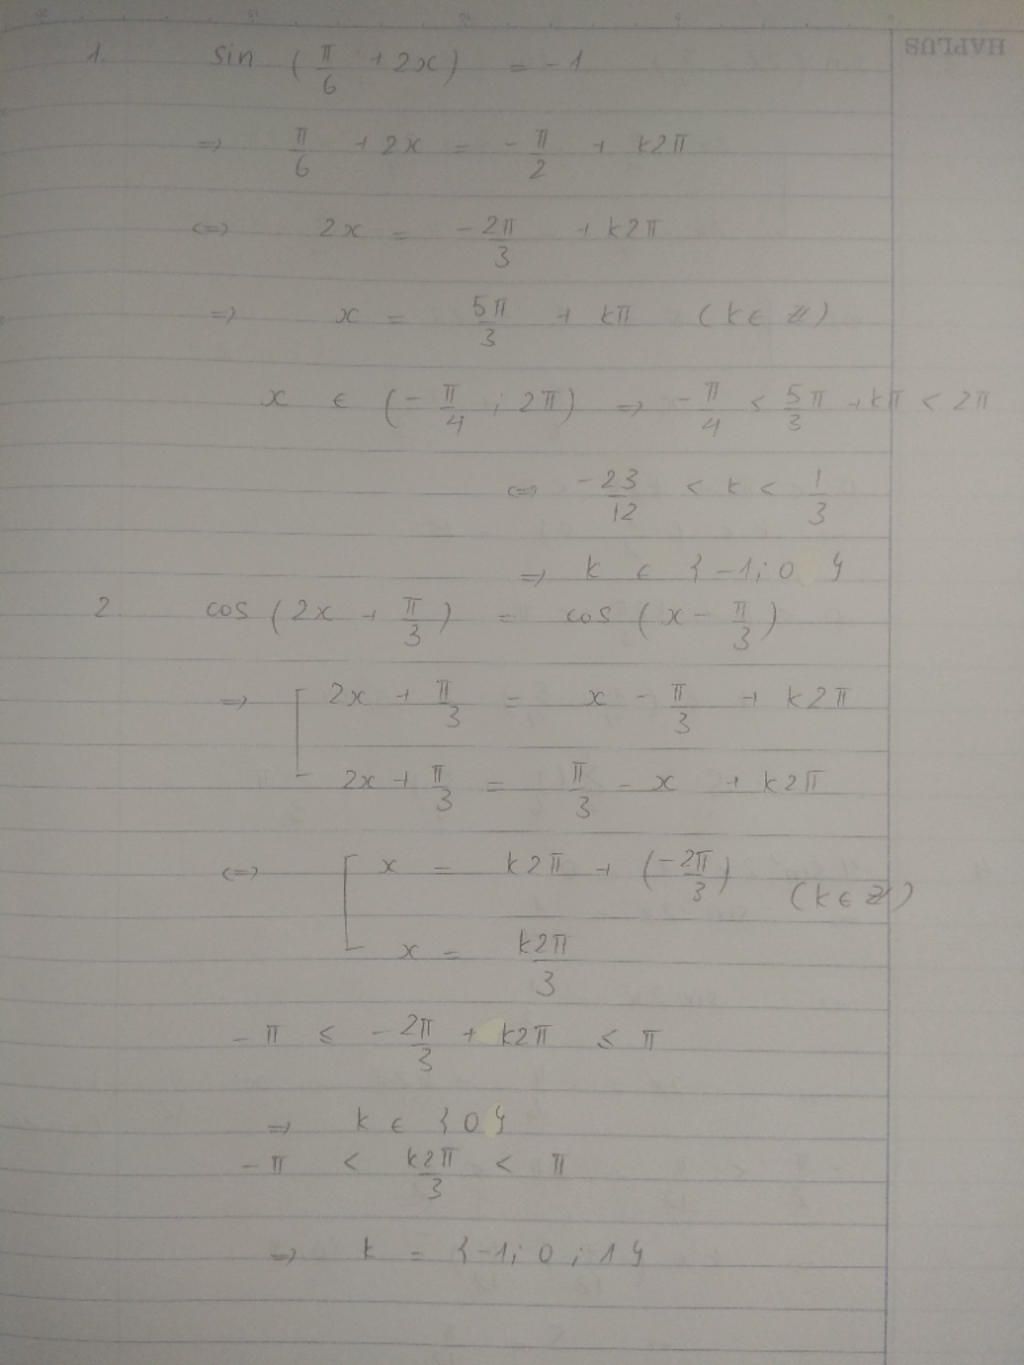 HAPLUS
1. sin (π/6 + 2x) = -1
=> π/6 + 2x = -π/2 + k2π
<=> 2x = -2π/3 + k2π
=> x = 5π/3 + kπ (k ∈ Z)
x ∈ (-π/4 ; 2π) => -π/4 < 5/3 π + kπ < 2π
<=> -23/12 < k < 1/3
=> k ∈ {-1; 0}
2. cos (2x + π/3) = cos (x - π/3)
=> [ 2x + π/3 = x - π/3 + k2π
2x + π/3 = π/3 - x + k2π
<=> [ x = k2π + (-2π/3) (k ∈ Z)
x = k2π/3
-π ≤ -2π/3 + k2π ≤ π
=> k ∈ {0}
-π < k2π/3 < π
=> k = {-1; 0; 1}